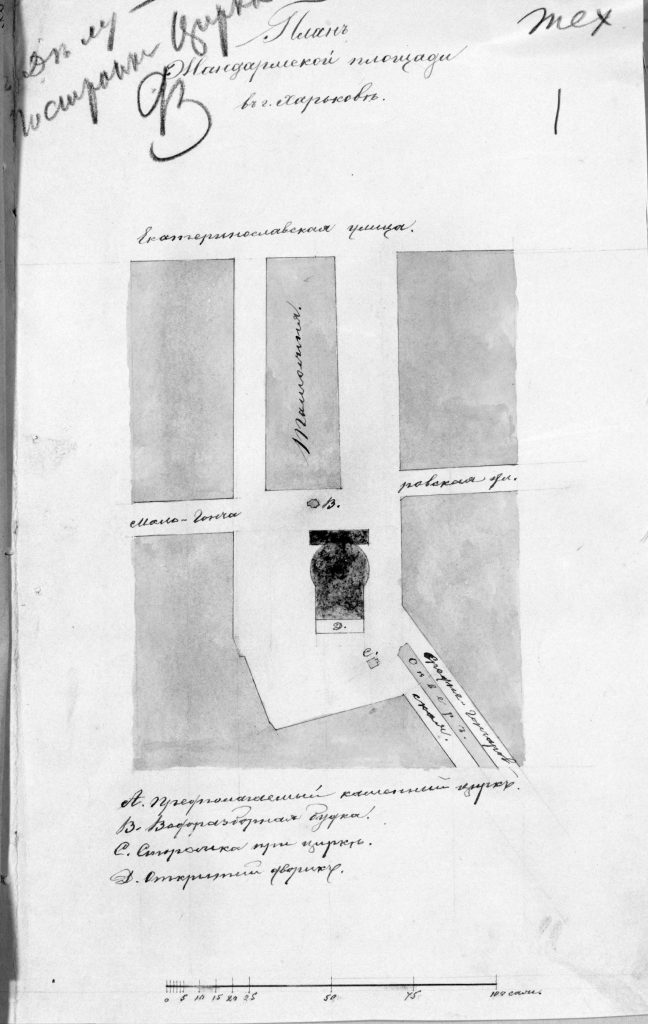 Къ дѣлу
Постройки Цирка
тех
Планъ
Жандармской площади
въ г. Харьковѣ.
1
Екатеринославская улица.
В.
ровская ул.
Мало-Гонча
Д.
С.
Средне-Гончаров
ская.
А. Предполагаемый каменный циркъ.
В. Водоразборная будка.
С. Сторожка при циркѣ.
Д. Открытый дворикъ.
0 5 10 15 20 25 50 75 100 саж.